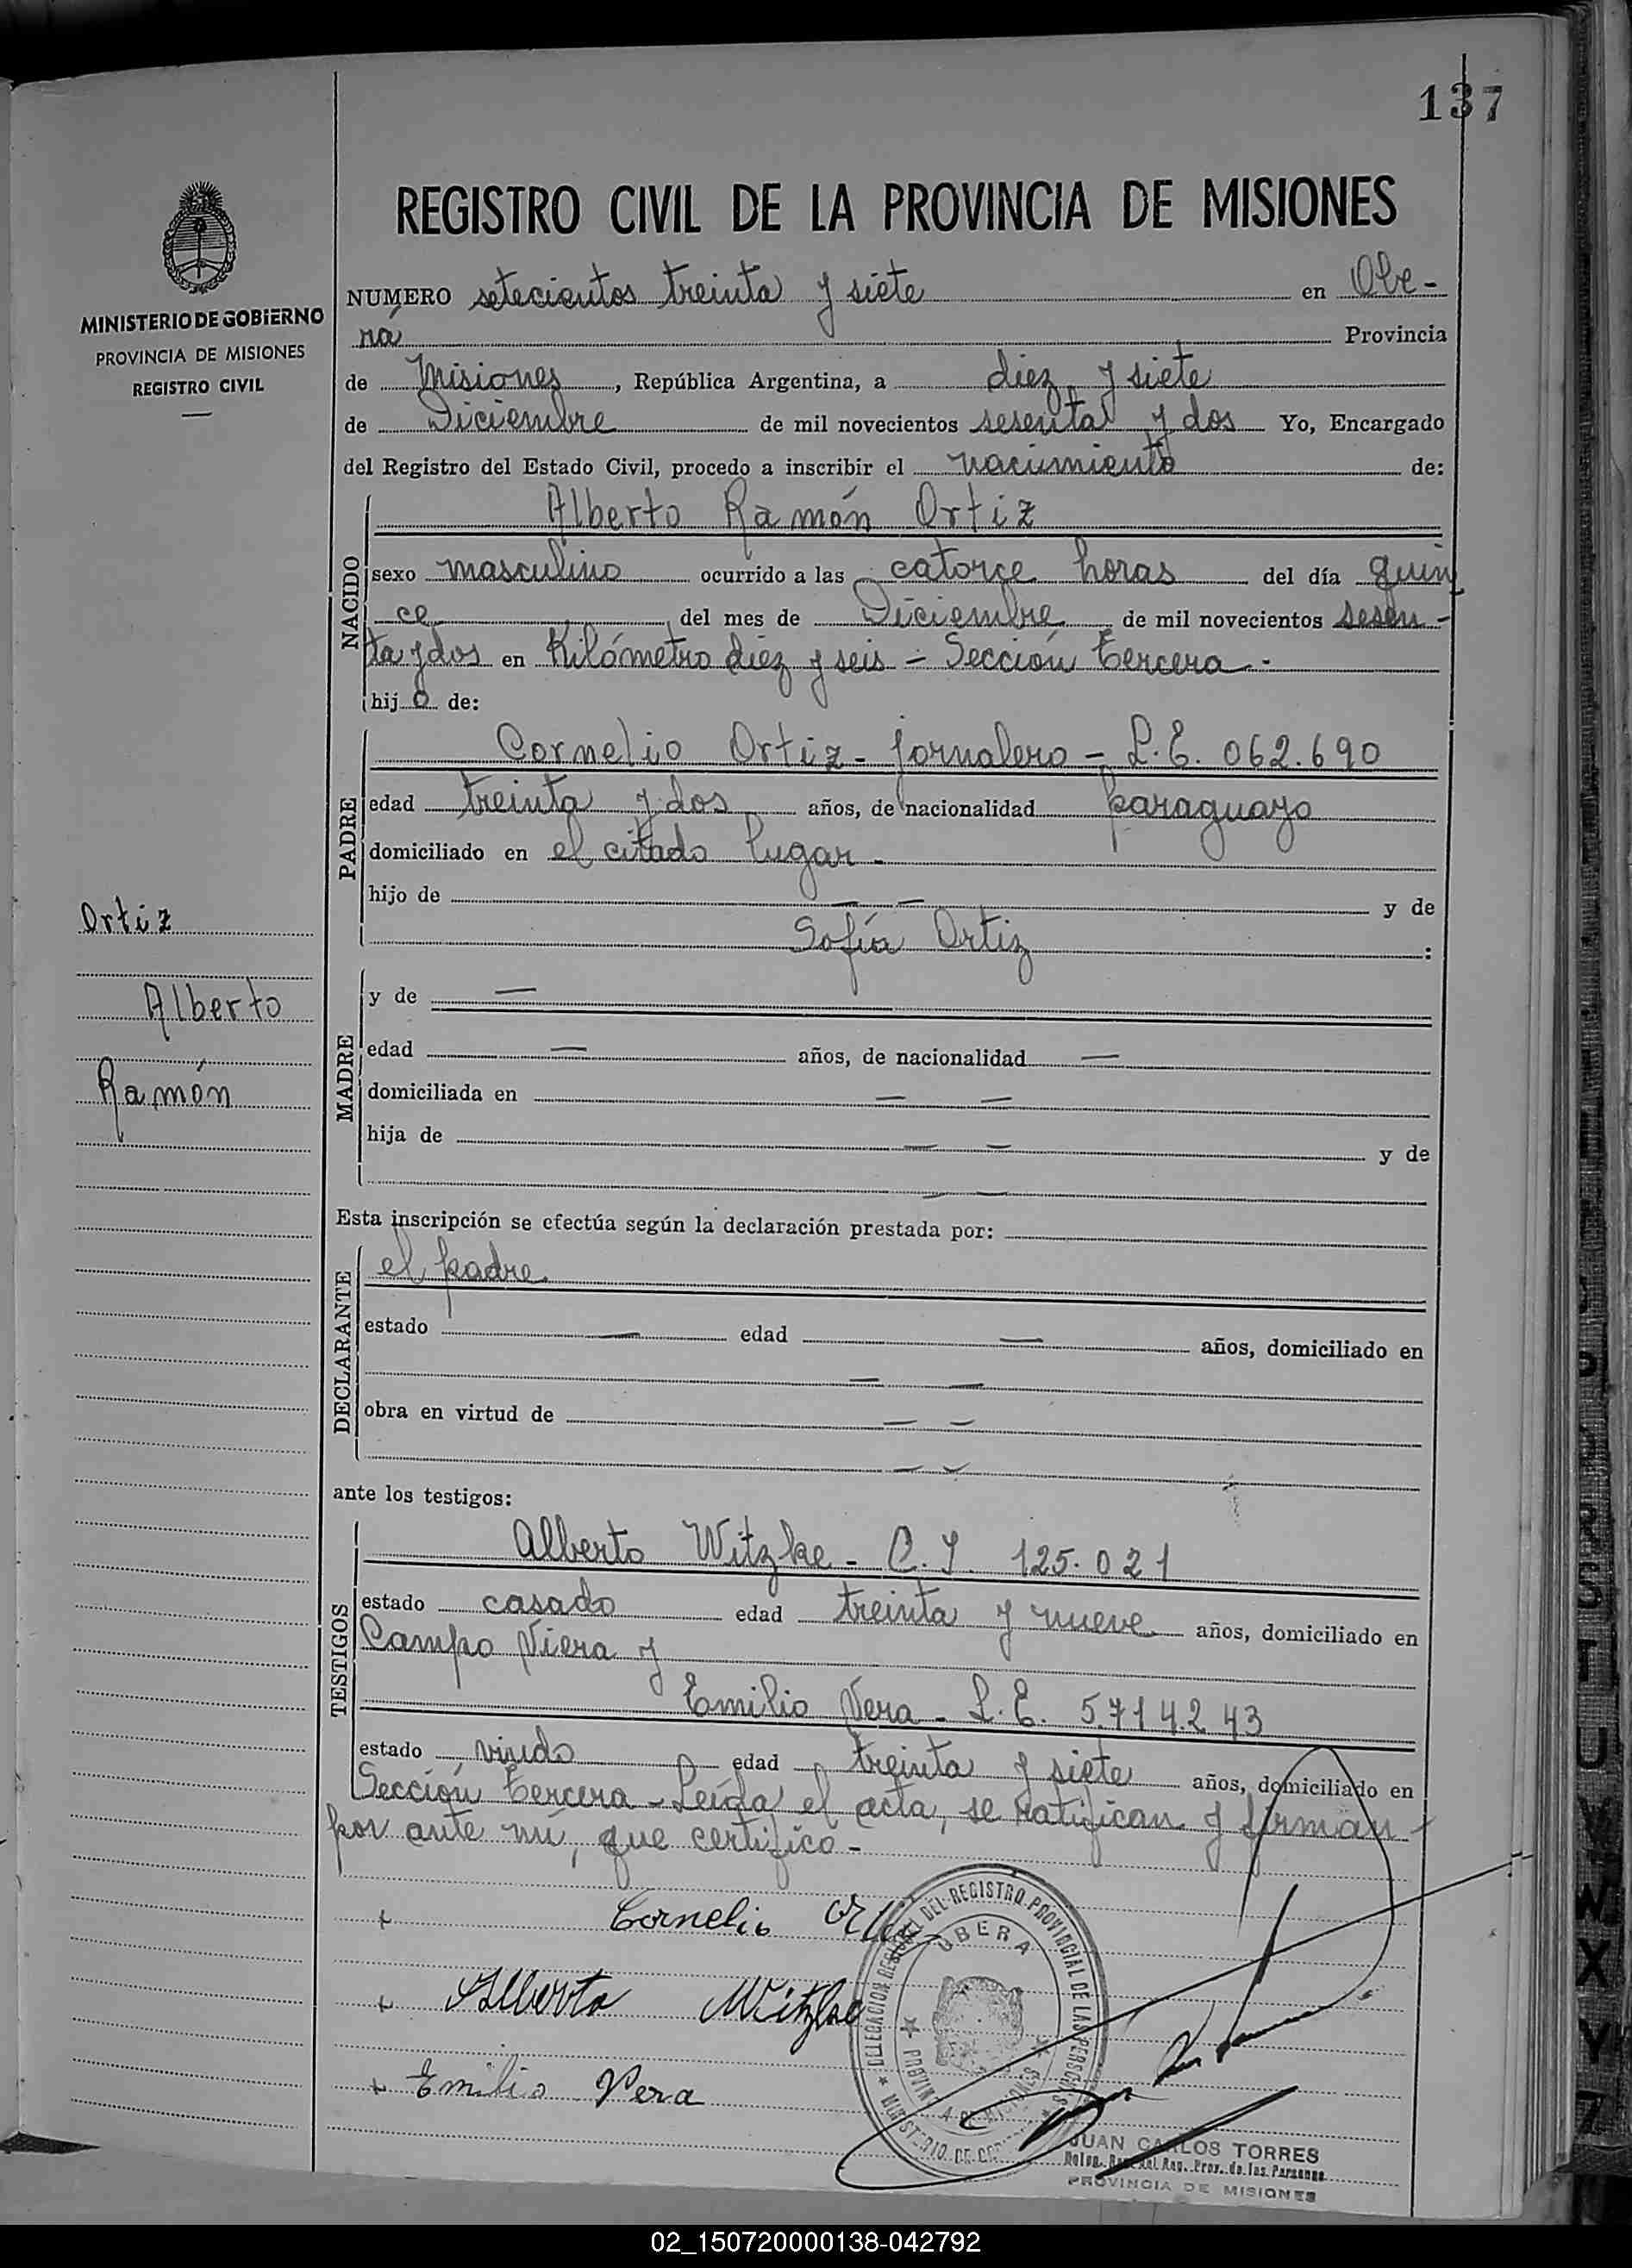 137
REGISTRO CIVIL DE LA PROVINCIA DE MISIONES
MINISTERIO DE GOBIERNO
PROVINCIA DE MISIONES
REGISTRO CIVIL
NUMERO setecientos treinta y siete en Obe-
rá Provincia
de Misiones, República Argentina, a diez y siete
de Diciembre de mil novecientos sesenta y dos Yo, Encargado
del Registro del Estado Civil, procedo a inscribir el nacimiento de:
NACIDO
Alberto Ramón Ortiz
sexo masculino ocurrido a las catorce horas del día quin
ce del mes de Diciembre de mil novecientos sesen-
ta y dos en Kilómetro diez y seis - Sección Tercera.-
hijo de:
PADRE
Cornelio Ortiz - jornalero - L.E. 062.690
edad treinta y dos años, de nacionalidad paraguayo
domiciliado en el citado lugar -
hijo de — — y de
Sofía Ortiz :
Ortiz
Alberto
Ramón
MADRE
y de —
edad — años, de nacionalidad —
domiciliada en — —
hija de — — y de
— —
Esta inscripción se efectúa según la declaración prestada por:
DECLARANTE
el padre
estado — edad — años, domiciliado en
— —
obra en virtud de — —
— —
ante los testigos:
TESTIGOS
Alberto Witzke - C.I. 125.021
estado casado edad treinta y nueve años, domiciliado en
Campo Viera y
Emilio Vera - L.E. 5.714.243
estado viudo edad treinta y siete años, domiciliado en
Sección Tercera - Leída el acta, se ratifican y firman
por ante mí, que certifico -
+ Cornelio Ortiz
+ Alberto Witzke
+ Emilio Vera
DELEGACION REGIONAL DEL REGISTRO PROVINCIAL DE LAS PERSONAS
OBERA
PROVINCIA DE MISIONES
JUAN CARLOS TORRES
Reg. Prov. de las Personas
PROVINCIA DE MISIONES
02_150720000138-042792